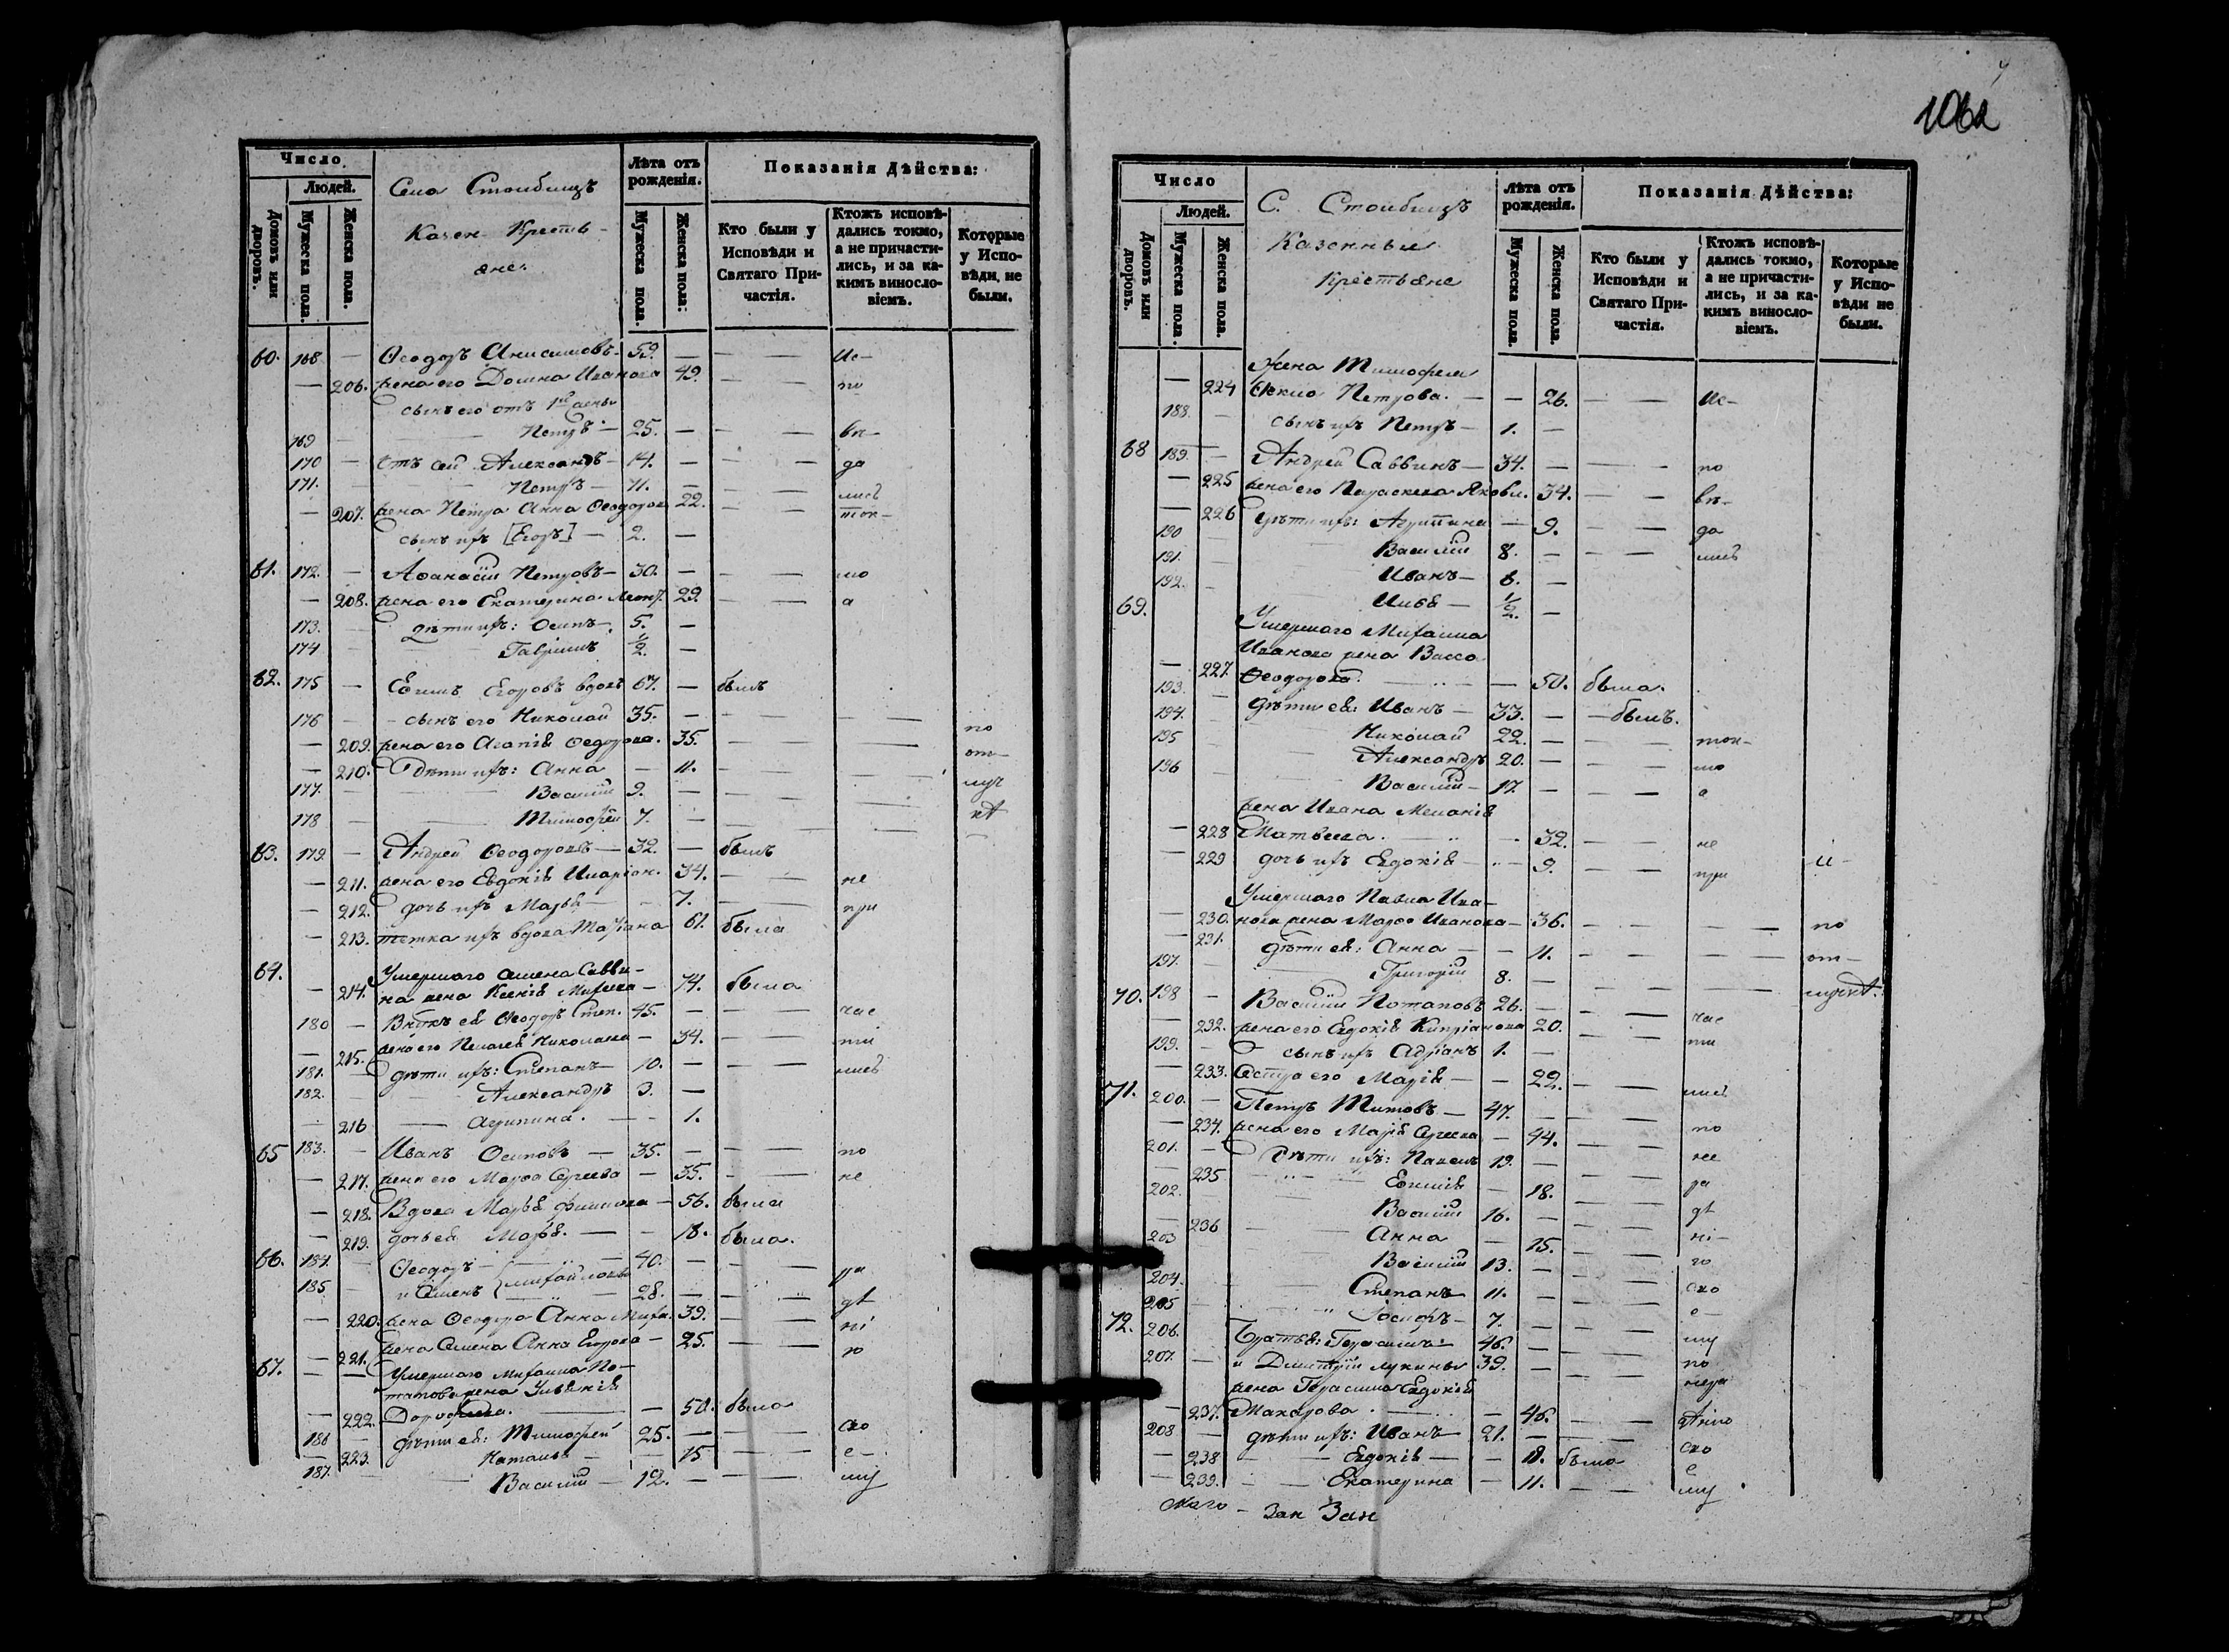 Число
Людей.
Домовъ или дворовъ.
Мужеска пола.
Женска пола.
Села Столбищъ
Казен. Кресть-
яне.
Лѣта отъ рожденія.
Мужеска пола.
Женска пола:
Показанія Дѣйства:
Кто были у Исповѣди и Святаго Причастія.
Ктожъ исповѣ-
дались токмо,
а не причасти-
лись, и за ка-
кимъ винословіемъ.
Которые у Испо-
вѣди, не были.
60. 168 — Ѳеодоръ Анисимовъ — 59. — — — Ис-
— 206. жена его Домна Иванова 49. — — по
сынъ его отъ 1й жены
169 — Петръ — 25. — — — вѣ-
170 — отъ сей Александръ — 14. — — — да
171. Петръ — 11. — — — лись
— 207. жена Петра Анна Ѳеодорова 22. — — ток-
сынъ ихъ [Егоръ] — 2. —
61. 172. — Аѳанасій Петровъ — 30. — — — мо
— 208. жена его Екатерина Леонт. 29. — — а
173. дѣти ихъ: Осипъ — 5. —
174 Гавріилъ 1/2. —
62. 175 — Егоровъ вдовъ 67. — былъ
176 — сынъ его Николай 35. — — — по
— 209. жена его Агапія Ѳедорова. 35. — — от-
— 210. Дѣти ихъ: Анна — 11. — — луч
177. Василій 9. —
178 Тимофей 7. —
63. 179 — Андрей Ѳеодоровъ — 32. — былъ
— 211. жена его Евдокія Иларіон. 34. — — не
— 212. дочь ихъ Марья — 7. — — при
— 213. тетка ихъ вдова Татіана 61. была
64. Умершаго Семена Савви-
— 214. на жена Ксенія Михеева — 74. была
180 — Внукъ ея Ѳеодоръ Степ. 45. — — — час
— 215. жена его Пелагея Николаева — 34. — — ти
181. дѣти ихъ: Степанъ 10. — — — лись
182. Александръ 3. —
216 — Агрипина. — 1.
65 183. — Иванъ Осиповъ — 35. — — — по
— 217. жена его Марѳа Сергеева — 35. — — не
— 218. Вдова Марья Филипова — 56. была
— 219. дочь ея Марья. — 18. была.
66. 184. — Ѳеодоръ — 40. — — — ра
185 и Семенъ { Михайловы 28. — — — дѣ
— 220. жена Ѳеодора Анна Миха. 39. — — ні
— 221. жена Семена Анна Егорова — 25. — — ю
67. — — Умершаго Михаила По-
тапова жена
— 222. Дороѳеева. — 50. была
186 — дѣти ея: Тимофей 25. — — — сво
— 223. Наталья — 15 — — е-
187. Василій — 12. — — — му
106а
Число
Людей.
Домовъ или дворовъ.
Мужеска пола.
Женска пола.
С. Столбищъ
Казенные
Крестьяне
Лѣта отъ рожденія.
Мужеска пола.
Женска пола.
Показанія Дѣйства:
Кто были у Исповѣди и Святаго Причастія.
Ктожъ исповѣ-
дались токмо,
а не причасти-
лись, и за ка-
кимъ винословіемъ.
Которые у Испо-
вѣди не были.
Жена Тимофея
— 224 Ѳекла Петрова. — — 26. — — Ис-
188. — сынъ ихъ Петръ — 1. —
68 189. — Андрей Саввинъ — 34. — — — по
— 225 жена его Параскева Яковл. 34. — — вѣ-
— 226 дѣти ихъ: Агрипина — 9. — — да
190 Василій 8. — — — лись
191. Иванъ — 6. —
192. Илья — 1/2. —
69. Умершаго Михаила
Иванова жена Васса
— 227. Ѳеодорова. — 50. была.
193. дѣти ея: Иванъ — 33. — — былъ.
194. Николай 22. — — — ток-
195 Александръ 20. — — — мо
196 Василій — 17. — — — а
жена Ивана Меланія
— 228 Матвеева. — 32. — — не
— 229 дочь ихъ Евдокія — 9. — при И-
Умершаго Павла Ива-
— 230. нова жена Марѳа Иванова — 36. — — по
— 231. дѣти ея: Анна — 11. — — от-
197. Григорій 8. —
70. 198 — Василій Потаповъ 26. — — — час
— 232. жена его Евдокія Кипріанова 20. — — ти
199. — сынъ ихъ Адріанъ 1. —
— 233. Сестра его Марія — — 22. — — лись
71. 200. — Петръ Титовъ — 47. — — — по
— 234. жена его Марія Сергеева — 44. — — не
201. — Дѣти ихъ: Павелъ 19. — — — ра
— 235 — 18. — — дѣ
202. Василій 16. — — — ні-
— 236 — Анна — 15. — — ю
203 Василій 13. — — — сво
204. Степанъ 11. — — — е-
205 Іосифъ — 7. — — — му
72. 206. Братья: Герасимъ 46. — — — по
207. — и Димитрій Лукины 39. — — — нера
жена Герасима Евдокія
— 237. Макарова. — 46. — —
208 — дѣти ихъ: Иванъ — 21. — — — сво
— 238 — Евдокія — — 18. была е
— 239. Екатерина — 11. — — му